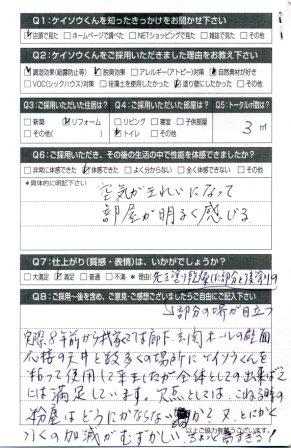 Q1：ケイソウくんを知ったきっかけをお聞かせ下さい
☑店頭で見た □ホームページで調べた □NETショッピングで見た □雑誌で見た □その他
Q2：ケイソウくんをご採用いただきました理由をお教え下さい
☑調湿効果（結露防止等） ☑脱臭効果 □アレルギー（アトピー）対策 ☑自然素材が好き
□VOC（シックハウス）対策 □珪藻土を使用したかった ☑塗り壁にしたかった □その他
Q3：ご採用いただいた住居は？ Q4：ご採用いただいた部屋は？ Q5：トータル㎡数は？
□新築 ☑リフォーム □リビング □寝室 □子供部屋
□その他( ) ☑トイレ □その他
3 ㎡
Q6：ご採用いただき、その後の生活の中で性能を体感できましたか？
□非常に体感できた ☑体感できた □よく分からない □全く体感できない □その他
*具体的に明記下さい
空気がきれいになって
部屋が明るく感じる
Q7：仕上がり（質感・表情）は、いかがでしょうか？
□大満足 ☑満足 □普通 □不満 *理由(先に塗り乾燥した部分と後塗りの
Q8：ご採用～後を含め、ご意見・ご感想ございましたらご自由にご記入下さい
部分の場が目立つ
実際8年前から我家では廊下 玄関ホールの壁面
の天井と数多くの場所にケイソウくんを
使用して来ましたが全体としての出来ばえ
には満足しています。欠点としては、こねる時の
粉塵はどうにかならない 又、とにかく
の加減がむずかしい
以上ご協力有難うございます。